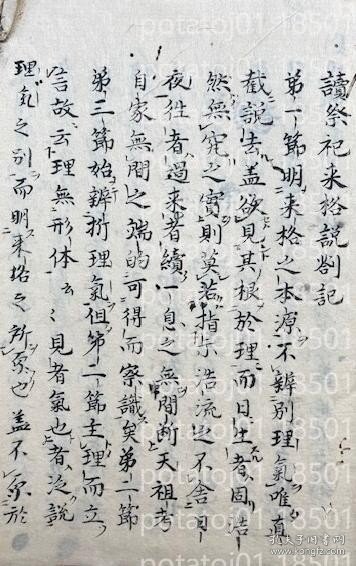 讀祭祀来格說劄記
第一節明来格之本源不辨別理氣唯直
截說去盖欲見其根於理而日生者固浩
然無窮之實則莫若指示浩流之不舍日
夜往者過来者續一息之無間断天祖考
自家無間之端的可得而察識矣第二節
第三節始辨析理氣但第二節主理而立
言故云理無形体云々見者氣也者泛説
理氣之別而明来格之所原也盖不原於
potatoj01 18501
孔夫子旧书网
www.kongfz.com